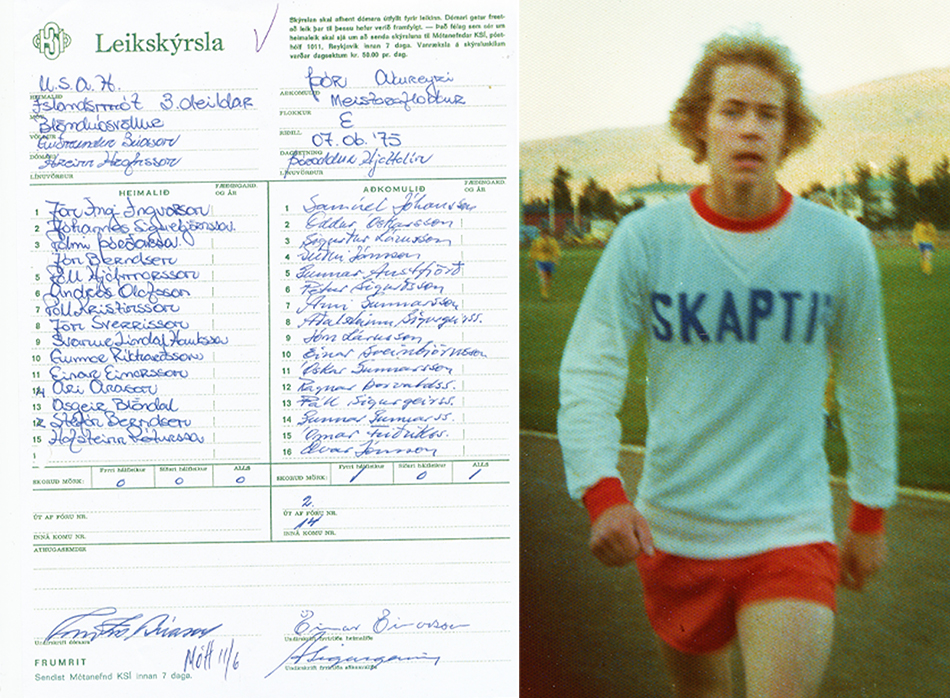 KSÍ
Leikskýrsla
Skýrslan skal afhent dómara útfyllt fyrir leikinn. Dómari getur frest-
að leik þar til þessu hefur verið framfylgt. — Það félag sem sér um
heimaleik skal sjá um að senda skýrsluna til Mótanefndar KSÍ, póst-
hólf 1011, Reykjavík innan 7 daga. Vanræksla á skýrsluskilum
varðar dagsektum kr. 50.00 pr. dag.
U.S.A.H.
HEIMALIÐ
Íslandsmót 3. deildar
MÓT
Blönduósvöllur
VÖLLUR
Guðmundur
DÓMARI
Hreinn
LÍNUVÖRÐUR
Þór Akureyri
AÐKOMULIÐ
Meistaraflokkur
FLOKKUR
E
RIÐILL
07.06.'75
DAGSETNING
LÍNUVÖRÐUR
HEIMALIÐ
FÆÐINGARD. OG ÁR
1 Jón Ingi Ingvarsson
2 Jóhannes
3 Pálmi Þórðarson
Jón Berndsen
5 Páll
6 Andrés Ólafsson
7 Páll Kristinsson
8 Jón Sverrisson
9 Sverrir
10 Gunnar Rikhardsson
11 Einar Einarsson
Ari Arason
13 Ásgeir Blöndal
Stefán Berndsen
15 Hafsteinn Pétursson
1
SKORUÐ MÖRK:
Fyrri hálfleikur 0
Síðari hálfleikur 0
ALLS 0
AÐKOMULIÐ
FÆÐINGARD. OG ÁR
1 Samúel Jóhannsson
2 Oddur Óskarsson
3 Sigurður Lárusson
4 Jónsson
5 Gunnar Austfjörð
6 Pétur Sigurðsson
7 Árni Gunnarsson
8 Aðalsteinn Sigurgeirss.
9 Jón Lárusson
10 Einar Sveinbjörnsson
11 Óskar Gunnarsson
12 Ragnar Þorvaldss.
13 Páll Sigurgeirss.
14 Gunnar Gunnarss.
15 Ómar Friðrikss.
16 Ævar Jónsson
SKORUÐ MÖRK:
Fyrri hálfleikur 1
Síðari hálfleikur 0
ALLS 1
ÚT AF FÓRU NR.
INNÁ KOMU NR.
2.
ÚT AF FÓRU NR.
14
INNÁ KOMU NR.
ATHUGASEMDIR
Undirskrift dómara
Einar Einarsson
Undirskrift fyrirliða heimaliðs
Undirskrift fyrirliða aðkomuliðs
FRUMRIT
Mótt 11/6
Sendist Mótanefnd KSÍ innan 7 daga.
SKAPTI